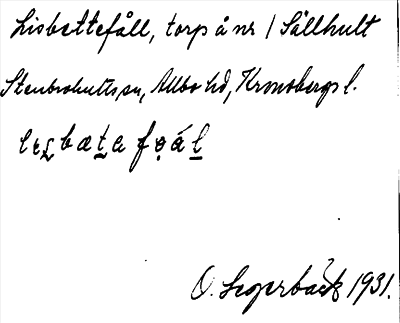 Lisbettefåll, torp å nr 1 Sällhult
Stenbrohults, sn, Allbo hd, Kronobergs l.
O. Segerbäck 1931.